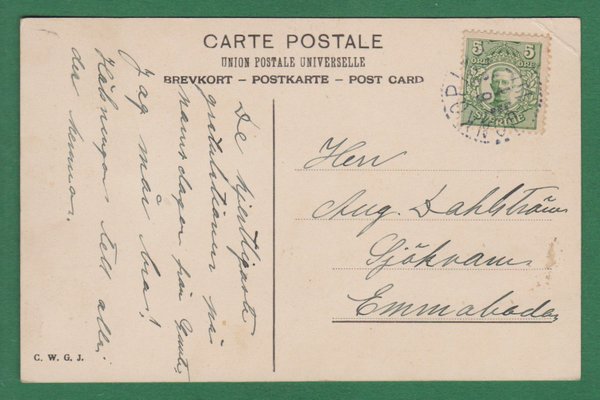 CARTE POSTALE
UNION POSTALE UNIVERSELLE
BREVKORT – POSTKARTE – POST CARD
5 5
ÖRE ÖRE
SVERIGE
De hjertligaste
gratulationer på
namnsdagen från
Jag mår bra!
Helsningar till alla
du känner.
Herr
Aug. Dahlström
Sjökvarns
Emmaboda
C. W. G. J.